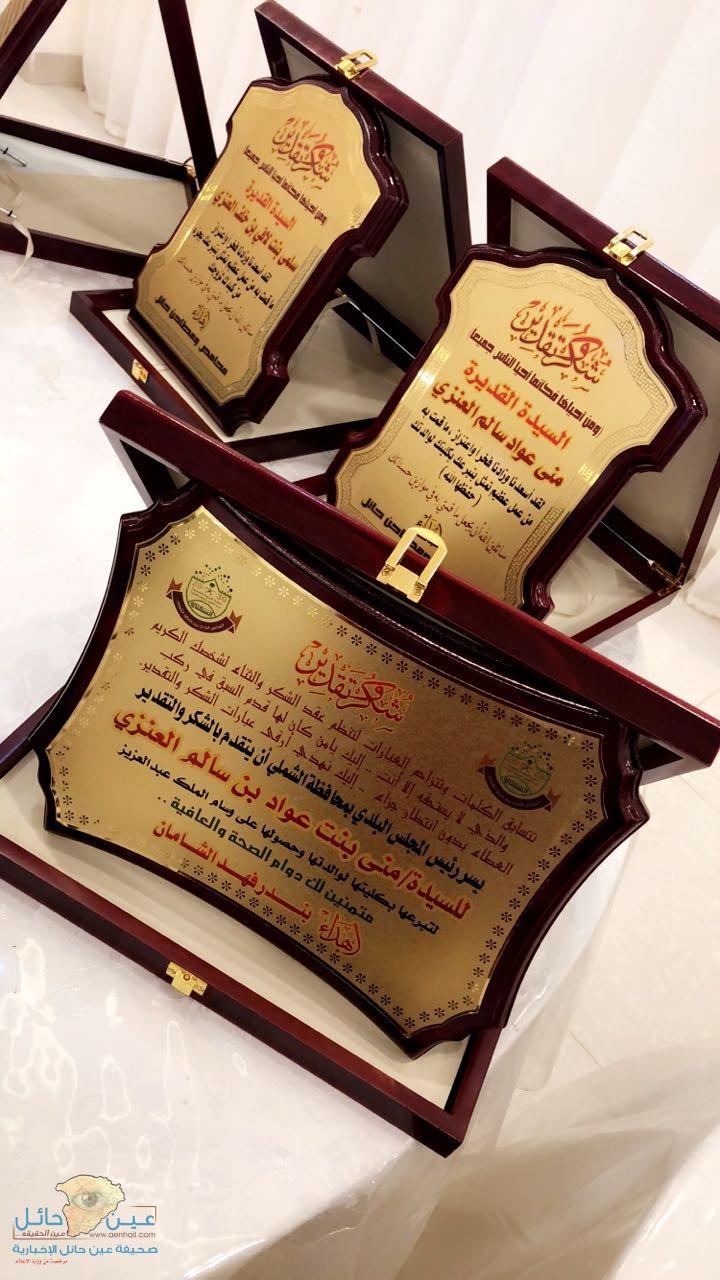 شكر وتقدير
ومن أحياها فكأنما أحيا الناس جميعا
السيدة القديرة
لقد اسعدنا وزادنا فخرا واعتزاز
شكر وتقدير
ومن احياها فكأنما احيا الناس جميعا
السيدة القديرة
منى عواد سالم العنزي
لقد اسعدنا وزادنا فخرا واعتزاز ، ما قمت به
من عمل عظيم تمثل بتبرعك بكليتك لوالدتك
(حفظها الله)
إهداء
شكر وتقدير
تتسابق الكلمات وتتزاحم العبارات لتنظم عقد الشكر والثناء لشخصك الكريم
والذي لا يستحقه إلا أنت .. إليك يامن كان لها قدم السبق في ركب
العطاء بدون انتظار جزاء .. إليك نهدي أرقى عبارات الشكر والتقدير.
يسر رئيس المجلس البلدي بمحافظة الشملي أن يتقدم بالشكر والتقدير
للسيدة/ منى بنت عواد بن سالم العنزي
لتبرعها بكليتها لوالدتها وحصولها على وسام الملك عبدالعزيز
متمنين لك دوام الصحة والعافية ..
إهداء بندر فهد الشامان
عين حائل
عين الحقيقه .. www.aenhail.com
صحيفة عين حائل الإخبارية
مرخصة من وزارة الاعلام